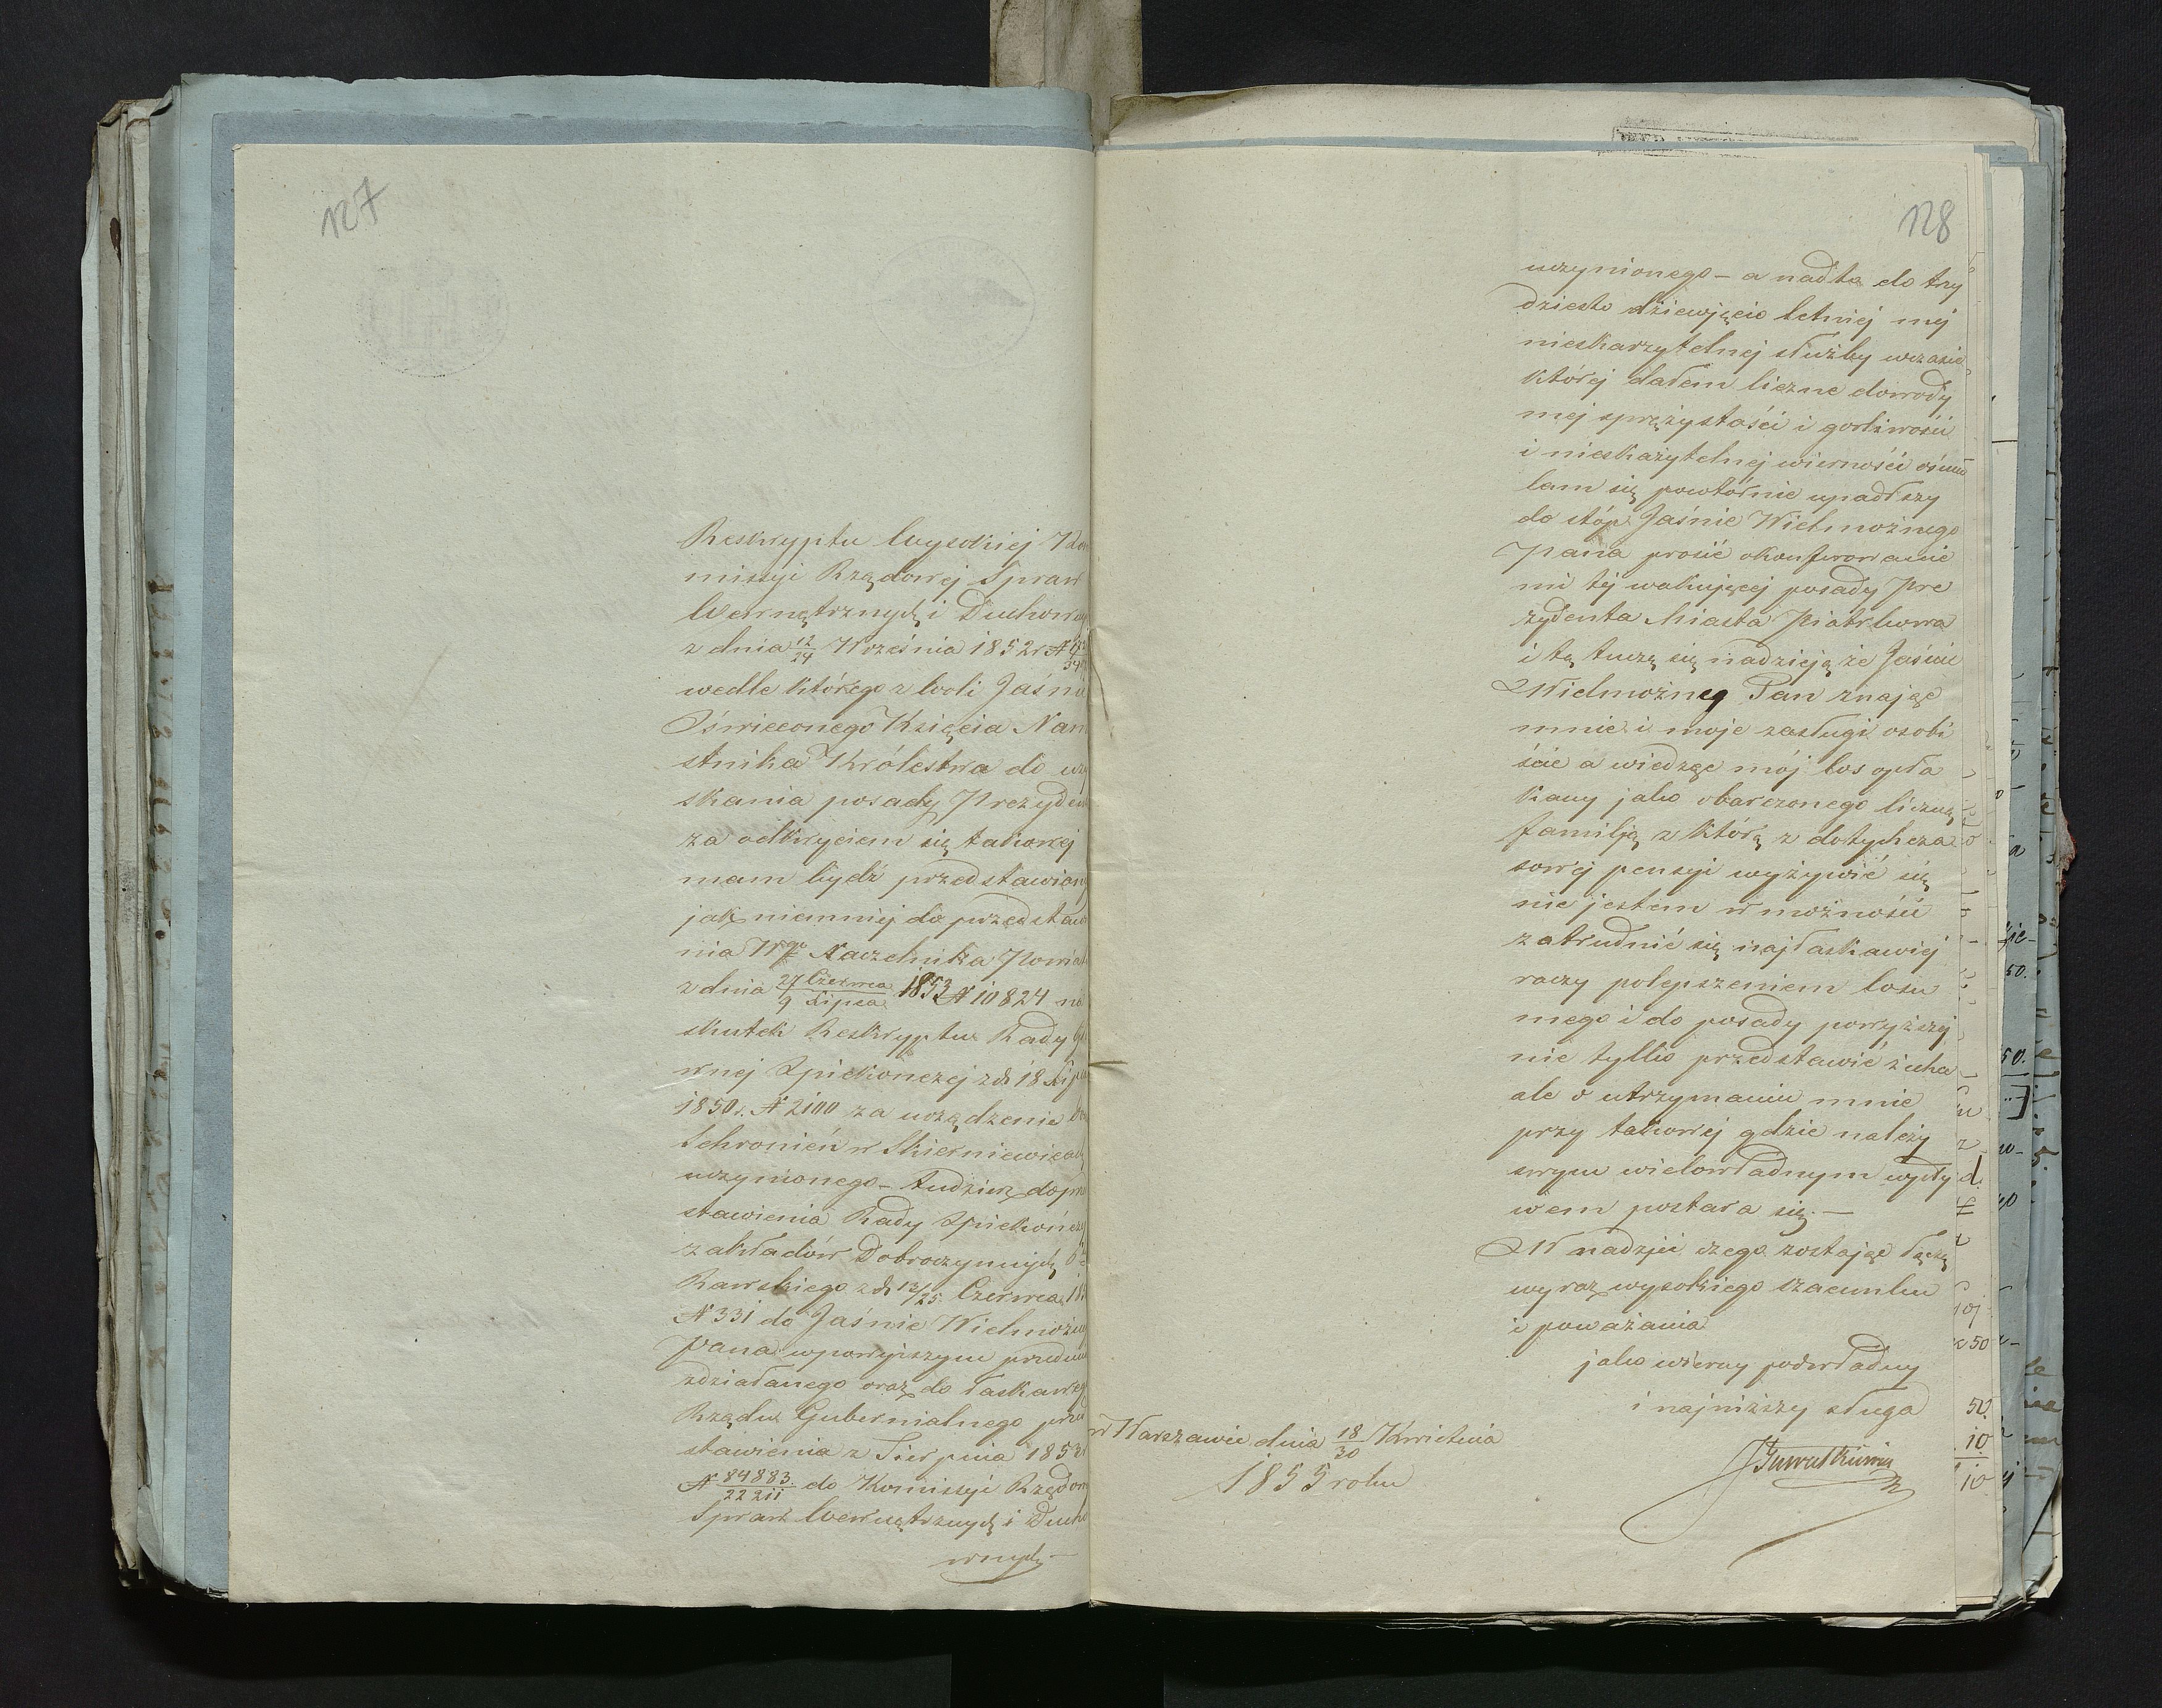 127
Reskryptu Wysokiej Kom
missyi Rządowej Spraw
Wewnętrznych i Duchown
z dnia 12/24 Września 1852 r. N
wedle którego z woli Jaśnie
Oświeconego Księcia Nam
stnika Królestwa do uzy
skania posady Prezydent
za odkryciem się takowej
mam bydź przedstawiony
jak niemniej do przedstawi
nia Wgo Naczelnika Powiat
z dnia 27 Czerwca/9 Lipca 1853 N 10824 na
skutek Reskryptu Rady Gł
wnej Opiekonczej z d. 18 Lipca
1850 r. N 2100 za urządzenie
Schronień w Skierniewicach
uczynionego – tudzież do prze
stawienia Rady Opiekończej
zakładów Dobroczynnych
Rawskiego z d. 13/25 Czerwca
N 331 do Jaśnie Wielmożneg
Pana w powyższym przedmi
zdziałanego oraz do łaskaweg
Rządu Gubernialnego prze
stawienia z Sierpnia 1853
N 84883/22211 do Komissyi Rządow
Spraw Wewnętrznych i Ducho
wnych –
128
uczynionego – a nadto do trzy
dziesto dziewięcio letniej mej
nieskazytelnej służby w czasie
której dałem liczne dowody
mej sprężystości i gorliwości
i nieskazytelnej wierności ośmie
lam się powtórnie upadłszy
do stóp Jaśnie Wielmożnego
Pana prosić o konferowanie
mi tej wakującej posady Pre
zydenta Miasta Piotrkowa
i tę tuszę się nadzieją że Jaśnie
Wielmożny Pan znając
mnie i moje zasługi osobi
ście a wiedząc mój los opła
kany jako obarczonego liczną
familją z którą z dotychcza
sowej pensyi wyżywić się
nie jestem w możności
zatrudnić się najłaskawiej
raczy polepszeniem losu
mego i do posady powyższej
nie tylko przedstawić zechce
ale o utrzymaniu mnie
przy takowej gdzie należy
swym wielowładnym wpły
wem postara się. –
W nadziei czego zostając łączę
wyraz wysokiego szacunku
i poważania
jako wierny podwładny
i najniższy sługa
w Warszawie dnia 18/30 Kwietnia
1855 roku
50
50.
10
10